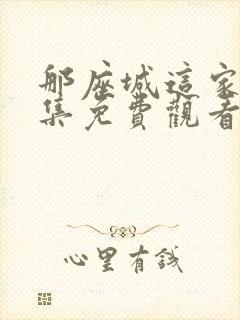 那座城這家
集免費觀看
心里有錢